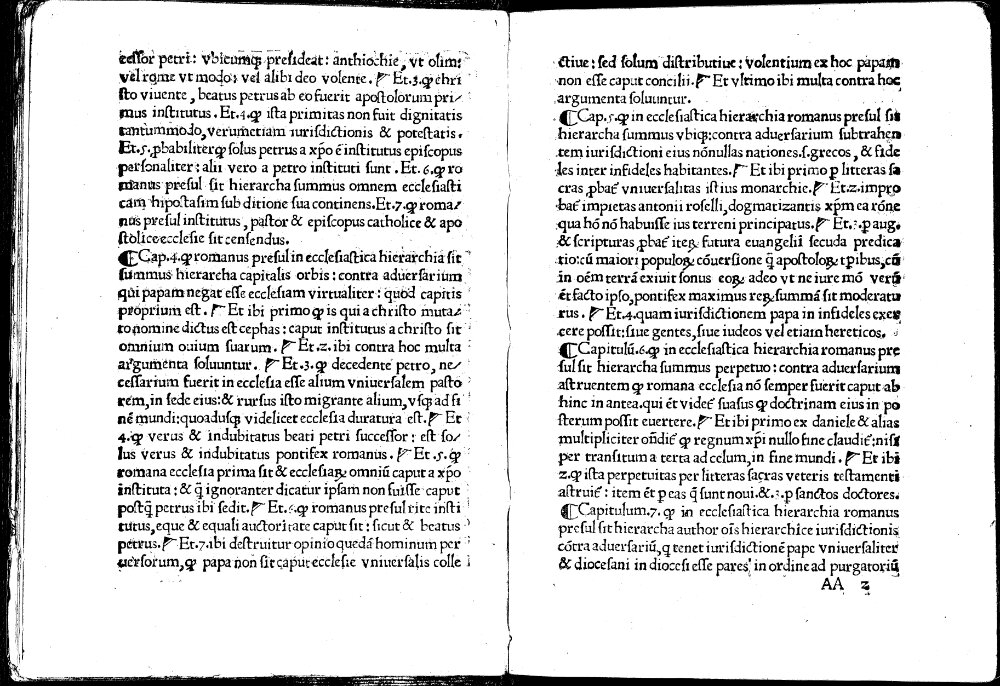 cessor petri: vbicumqȝ presideat: anthiochie, vt olim:
vel rome vt modo: vel alibi deo volente. ¶ Et .3. ꝙ chri
sto viuente, beatus petrus ab eo fuerit apostolorum pri/
mus institutus. Et .4. ꝙ ista primitas non fuit dignitatis
tantummodo, verumetiam iurisdictionis & potestatis.
Et .5. ꝓbabiliter ꝙ solus petrus a xp̄o ē institutus episcopus
personaliter: alii vero a petro instituti sunt. Et .6. ꝙ ro
manus presul sit hierarcha summus omnem ecclesiasti
cam hipostasim sub ditione sua continens. Et .7. ꝙ roma/
nus presul institutus, pastor & episcopus catholice & apo
stolice ecclesie sit censendus.
¶ Cap .4. ꝙ romanus presul in ecclesiastica hierarchia sit
summus hierarcha capitalis orbis: contra aduersarium
qui papam negat esse ecclesiam virtualiter: quod capitis
proprium est. ¶ Et ibi primo ꝙ is qui a christo muta/
to nomine dictus est cephas: caput institutus a christo sit
omnium ouium suarum. ¶ Et .2. ibi contra hoc multa
argumenta soluuntur. ¶ Et .3. ꝙ decedente petro, ne/
cessarium fuerit in ecclesia esse alium vniuersalem pasto
rem, in sede eius: & rursus isto migrante alium, vsqȝ ad fi
nē mundi: quoadusqȝ videlicet ecclesia duratura est. ¶ Et
4. ꝙ verus & indubitatus beati petri successor: est so/
lus verus & indubitatus pontifex romanus. ¶ Et .5. ꝙ
romana ecclesia prima sit & ecclesiaꝝ omniū caput a xp̄o
instituta: & q̄ ignoranter dicatur ipsam non fuisse caput
postq̄ petrus ibi sedit. ¶ Et .6. ꝙ romanus presul rite insti
tutus, eque & equali auctoritate caput sit: sicut & beatus
petrus. ¶ Et .7. ibi destruitur opinio quedā hominum per
uersorum, ꝙ papa non sit caput ecclesie vniuersalis colle
ctiue: sed solum distributiue: volentium ex hoc papam
non esse caput concilii. ¶ Et vltimo ibi multa contra hoc
argumenta soluuntur.
¶ Cap .5. ꝙ in ecclesiastica hierarchia romanus presul sit
hierarcha summus vbiqȝ: contra aduersarium subtrahen
tem iurisdictioni eius nōnullas nationes .s. grecos, & fide
les inter infideles habitantes. ¶ Et ibi primo ꝑ litteras sa
cras, ꝓbat̄ vniuersalitas istius monarchie. ¶ Et .2. impro
bat̄ impietas antonii roselli, dogmatizantis xp̄m ea rōne
qua hō nō habuisse ius terreni principatus. ¶ Et .3. ꝑ aug.
& scripturas, ꝓbat̄ iteꝝ futura euangelii secūda predica
tio: cū maiori populoꝝ cōuersione q̄ apostoloꝝ tꝑibus, cū
in oēm terrā exiuit sonus eoꝝ adeo vt ne iure mō verū
ēt facto ipso, pontifex maximus reꝝ summā sit moderatu
rus. ¶ Et .4. quam iurisdictionem papa in infideles exer
cere possit: siue gentes, siue iudeos vel etiam hereticos.
¶ Capitulū .6. ꝙ in ecclesiastica hierarchia romanus pre
sul sit hierarcha summus perpetuo: contra aduersarium
astruentem ꝙ romana ecclesia nō semper fuerit caput ab
hinc in antea. qui ēt videt̄ suasus ꝙ doctrinam eius in po
sterum possit euertere. ¶ Et ibi primo ex daniele & alias
multipliciter ondit̄ ꝙ regnum xp̄i nullo fine claudit̄: nisi
per transitum a terra ad celum, in fine mundi. ¶ Et ibi
2. ꝙ ista perpetuitas per litteras sacras veteris testamenti
astruit̄: item ēt ꝑ eas q̄ sunt noui. & .3. ꝑ sanctos doctores.
¶ Capitulum .7. ꝙ in ecclesiastica hierarchia romanus
presul sit hierarcha author oīs hierarchice iurisdictionis
cōtra aduersariū, q tenet iurisdictionē pape vniuersaliter
& diocesani in diocesi esse pares, in ordine ad purgatoriū
AA 2